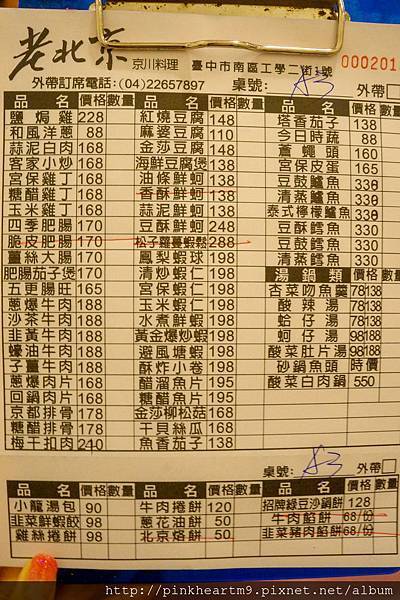 老北京 京川料理 臺中市南區工學二街1號 000201
外帶訂席電話：(04)22657897 桌號： A3 外帶□
品 名 價格 數量 品 名 價格 數量 品 名 價格 數量
鹽焗雞 228 紅燒豆腐 148 塔香茄子 138
和風洋蔥 88 麻婆豆腐 110 今日時蔬 88
蒜泥白肉 168 金莎豆腐 148 蒼蠅頭 160
客家小炒 168 海鮮豆腐煲 138 宮保皮蛋 165
宮保雞丁 168 油條鮮蚵 138 豆鼓鱸魚 330
糖醋雞丁 168 香酥鮮蚵 138 清蒸鱸魚 330
玉米雞丁 168 蒜泥鮮蚵 138 泰式檸檬鱸魚 330
四季肥腸 170 豆酥鮮蚵 248 豆酥鱈魚 330
脆皮肥腸 170 松子蘿蔓蝦鬆 288 豆鼓鱈魚 330
薑絲大腸 170 鳳梨蝦球 198 清蒸鱈魚 330
肥腸茄子煲 170 清炒蝦仁 198 湯鍋類 價格 數量
五更腸旺 165 宮保蝦仁 198 杏菜吻魚羹 78/138
蔥爆牛肉 188 玉米蝦仁 198 酸辣湯 78/138
沙茶牛肉 188 水煮鮮蝦 198 蛤仔湯 78/138
韭黃牛肉 188 黃金爆炒蝦 198 蚵仔湯 98/188
蠔油牛肉 188 避風塘蝦 198 酸菜肚片湯 98/188
子薑牛肉 188 酥炸小卷 198 砂鍋魚頭 時價
蔥爆肉片 168 醋溜魚片 195 酸菜白肉鍋 550
回鍋肉片 168 糖醋魚片 195
京都排骨 178 金莎柳松菇 168
糖醋排骨 178 干貝絲瓜 168
梅干扣肉 210 魚香茄子 138
桌號： A3 外帶□
品 名 價格 數量 品 名 價格 數量 品 名 價格 數量
小籠湯包 90 牛肉捲餅 120 招牌綠豆沙鍋餅 128
韭菜鮮蝦餃 98 蔥花油餅 50 牛肉餡餅 68/份
雞絲捲餅 98 北京烙餅 50 韭菜豬肉餡餅 68/份
http://pinkheartm9.pixnet.net/album